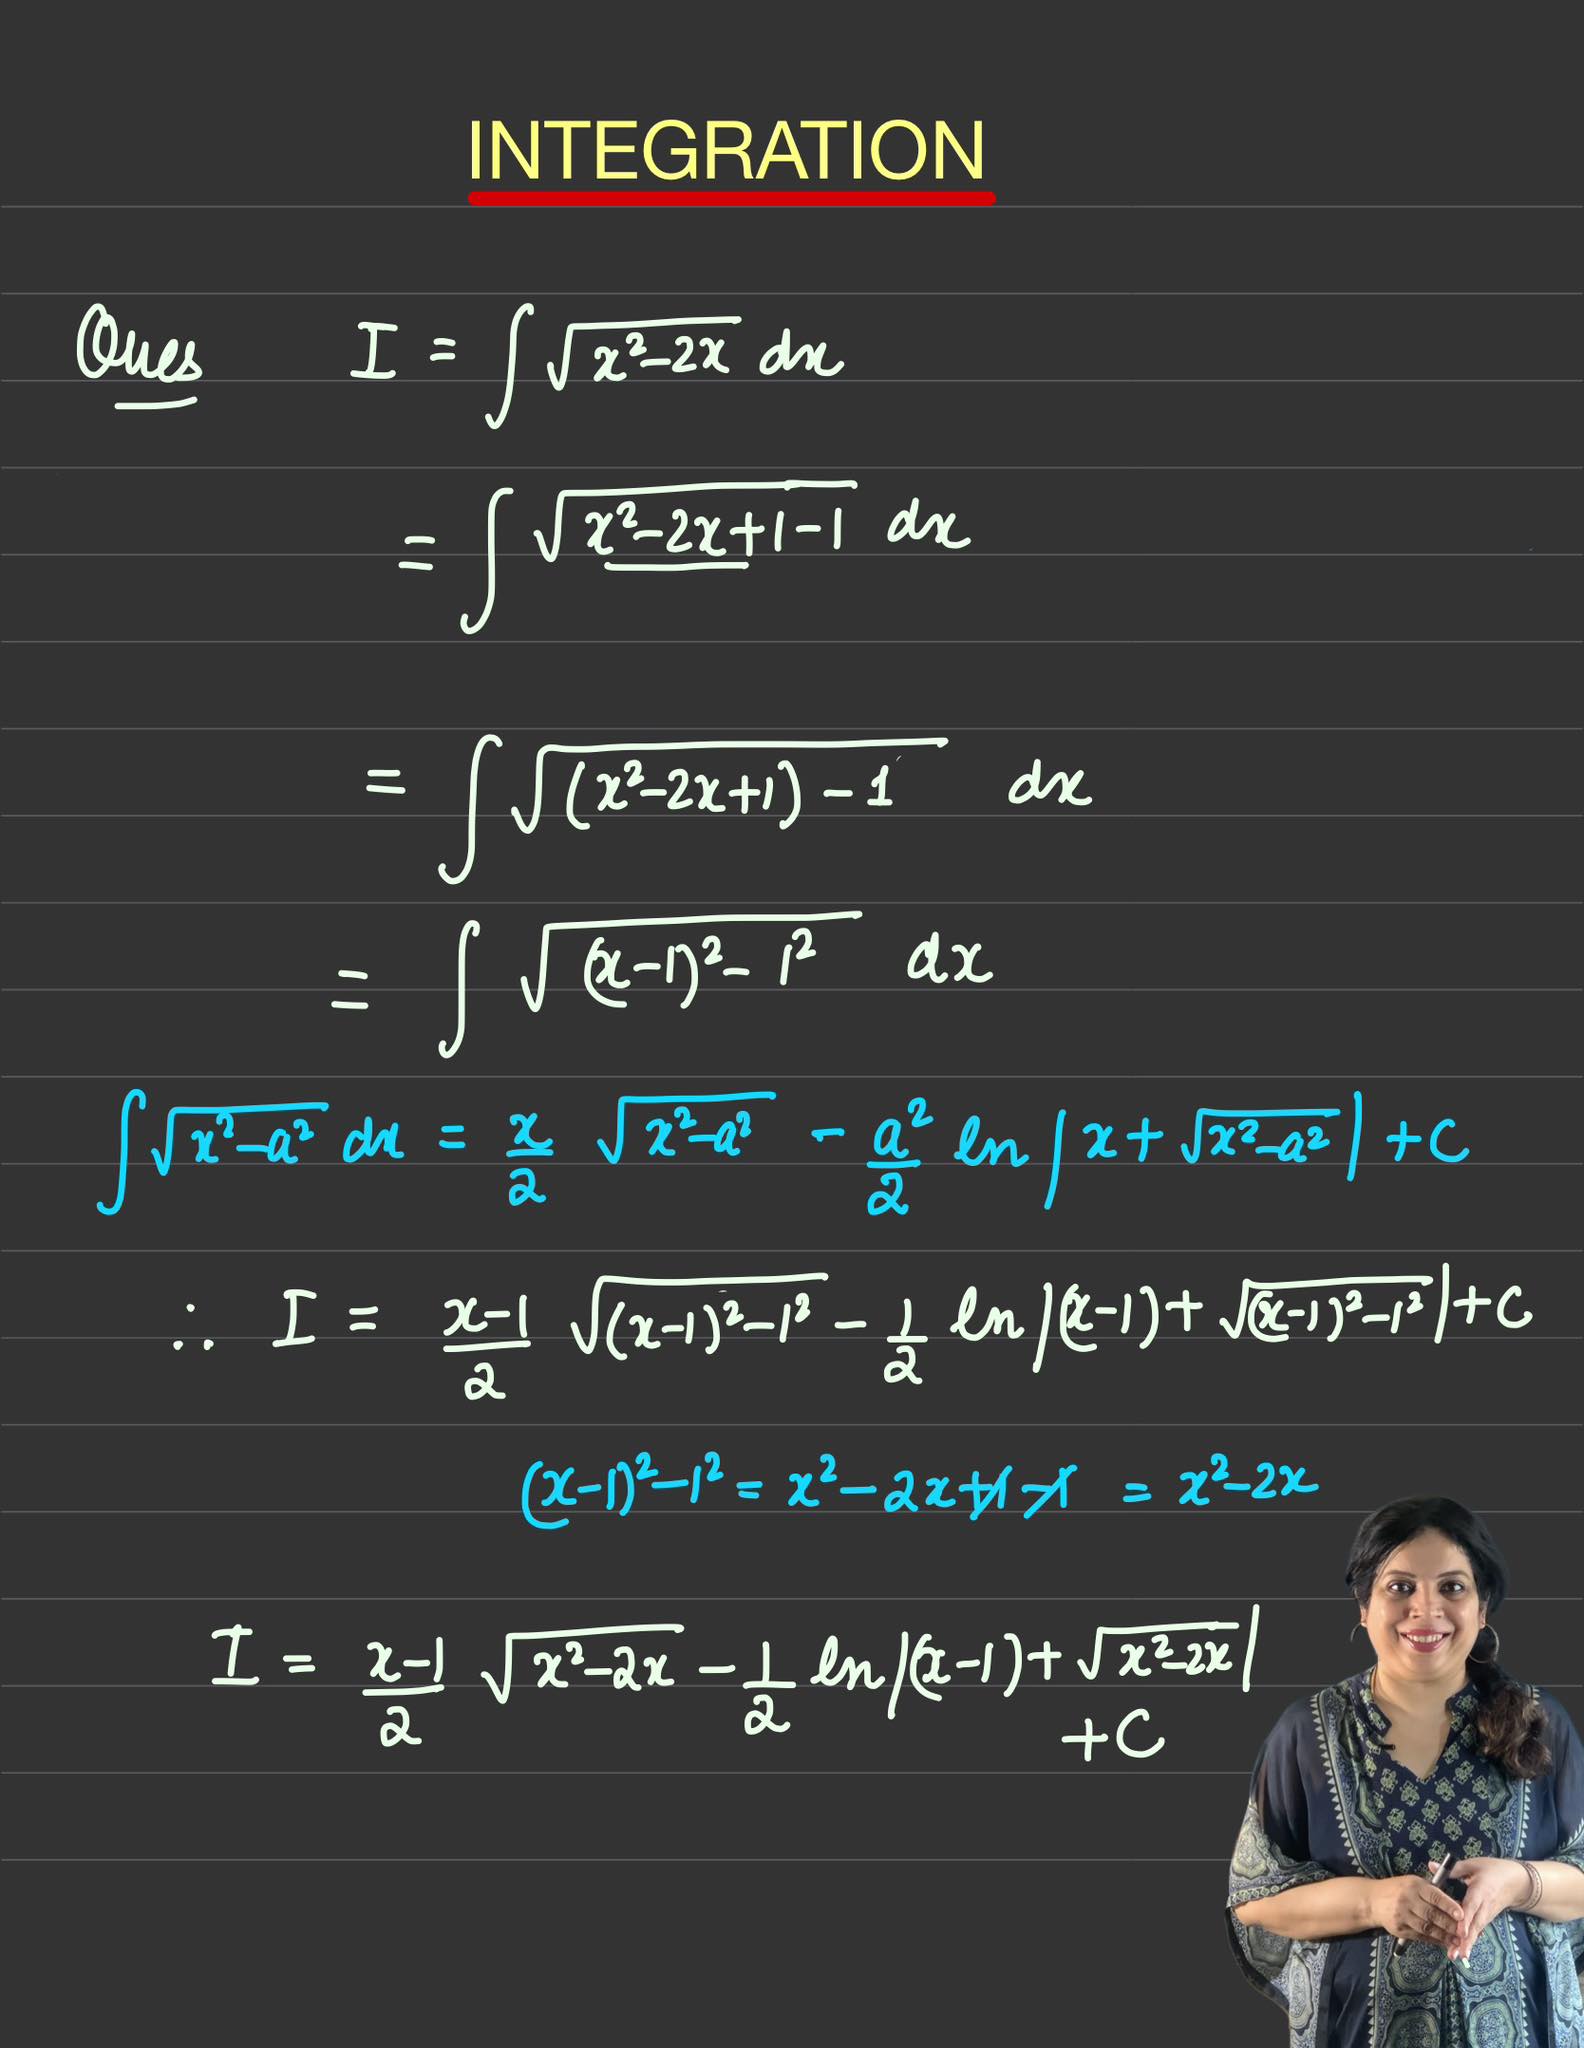 INTEGRATION
Ques I = ∫ √(x²-2x) dx
= ∫ √(x²-2x+1-1) dx
= ∫ √((x²-2x+1) - 1) dx
= ∫ √((x-1)² - 1²) dx
∫ √(x²-a²) dx = x/2 √(x²-a²) - a²/2 ln |x + √(x²-a²)| + C
∴ I = (x-1)/2 √((x-1)²-1²) - 1/2 ln |(x-1) + √((x-1)²-1²)| + C
(x-1)²-1² = x²-2x+1-1 = x²-2x
I = (x-1)/2 √(x²-2x) - 1/2 ln |(x-1) + √(x²-2x)|
+C